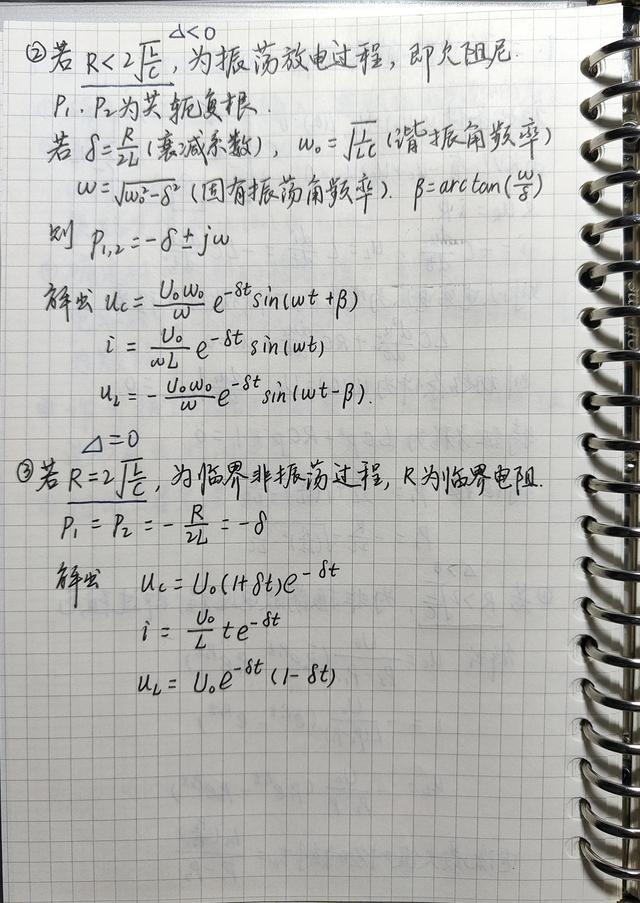 Δ<0
②若 R<2√(L/C), 为振荡放电过程, 即欠阻尼.
P₁、P₂为共轭复根.
若 δ=R/2L(衰减系数), ω₀=√(1/LC)(谐振角频率)
ω=√(ω₀²-δ²)(固有振荡角频率). β=arctan(ω/δ)
则 P₁,₂=-δ±jω
解出 u_C=(U₀ω₀/ω)e^(-δt)sin(ωt+β)
i=(U₀/ωL)e^(-δt)sin(ωt)
u_L=-(U₀ω₀/ω)e^(-δt)sin(ωt-β).
Δ=0
③若 R=2√(L/C), 为临界非振荡过程, R为临界电阻.
P₁=P₂=-R/2L=-δ
解出 u_C=U₀(1+δt)e^(-δt)
i=(U₀/L)te^(-δt)
u_L=U₀e^(-δt)(1-δt)